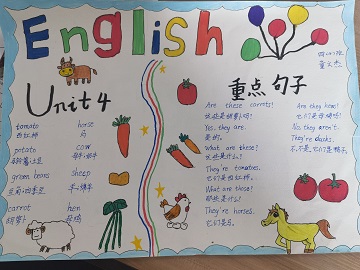 English
四(1)班
Unit 4
重点 句子
tomato horse
西红柿 马
potato cow
马铃薯;土豆 母牛;奶牛
green beans sheep
豆角;四季豆 羊;绵羊
carrot hen
胡萝卜 母鸡
Are these carrots?
这些是胡萝卜吗?
Yes, they are.
是的。
What are these?
这些是什么?
They're tomatoes.
它们是西红柿。
What are those?
那些是什么?
They're horses.
它们是马。
Are they hens?
它们是母鸡吗?
No, they aren't.
They're ducks.
不,不是。它们是鸭子